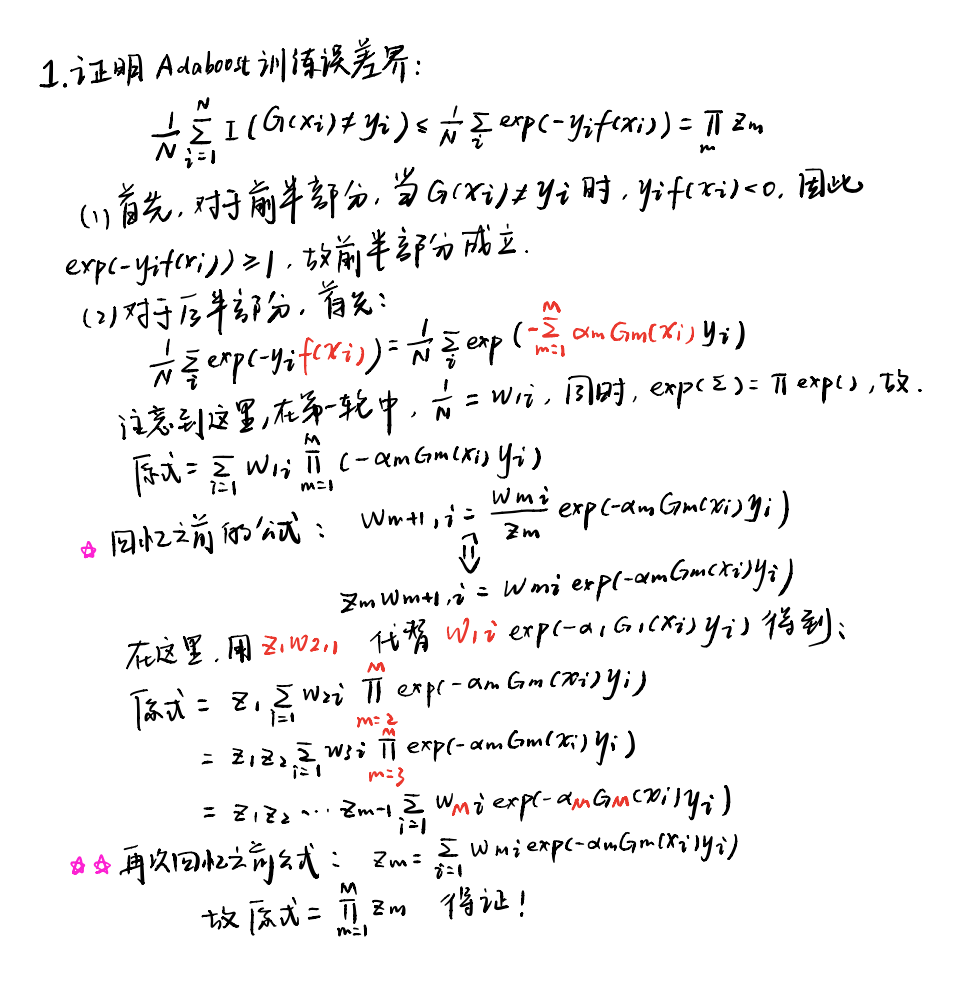 1.证明 Adaboost 训练误差界:
1/N Σ_{i=1}^{N} I(G(xi)≠yi) ≤ 1/N Σ_i exp(-yif(xi)) = Π_m Zm
(1) 首先,对于前半部分,当G(xi)≠yi时,yif(xi)<0,因此
exp(-yif(xi))≥1,故前半部分成立.
(2)对于后半部分,首先:
1/N Σ_i exp(-yif(xi)) = 1/N Σ_i exp(-Σ_{m=1}^{M} αmGm(xi)yi)
注意到这里,在第一轮中,1/N = W1i,同时,exp(Σ)=Πexp(),故.
原式 = Σ_{i=1} W1i Π_{m=1}^{M} (-αmGm(xi)yi)
☆ 回忆之前的公式: Wm+1,i = Wmi/Zm exp(-αmGm(xi)yi)
⇓
ZmWm+1,i = Wmi exp(-αmGm(xi)yi)
在这里,用 Z1W2,1 代替 W1i exp(-α1G1(xi)yi)得到:
原式 = Z1 Σ_{i=1} W2i Π_{m=2}^{M} exp(-αmGm(xi)yi)
= Z1Z2 Σ_{i=1} W3i Π_{m=3}^{M} exp(-αmGm(xi)yi)
= Z1Z2 ... Zm-1 Σ_{i=1} WMi exp(-αMGM(xi)yi)
☆☆ 再次回忆之前公式: Zm = Σ_{i=1} Wmi exp(-αmGm(xi)yi)
故原式 = Π_{m=1}^{M} Zm 得证!